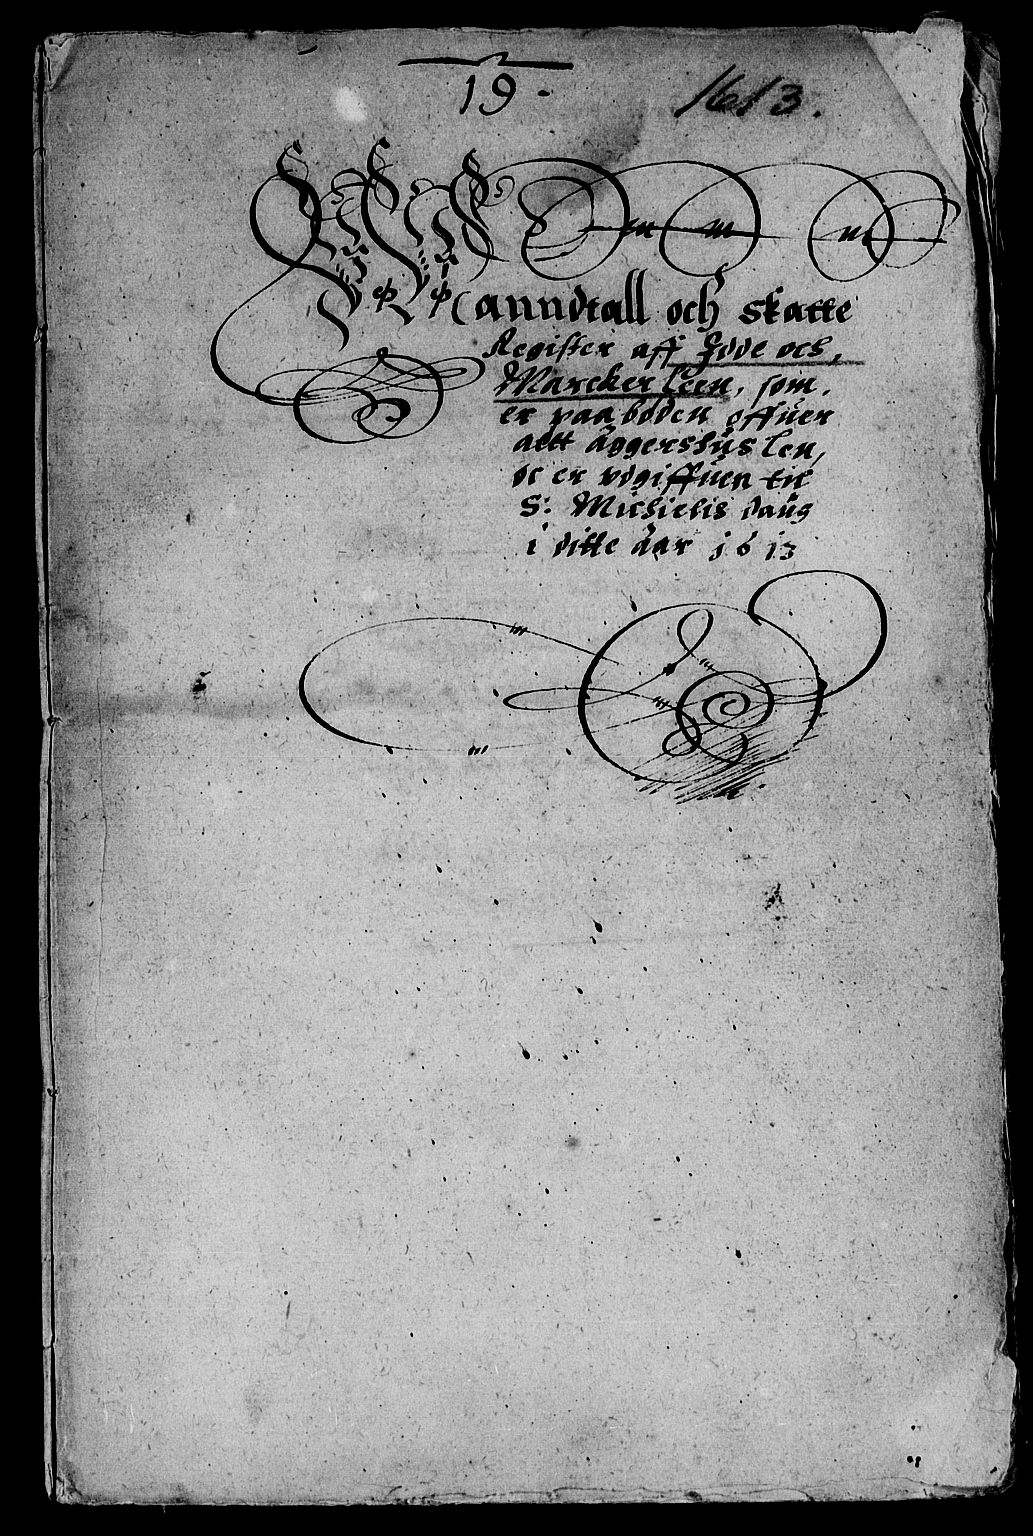 19.
1613.
Manndtall och skatte
Register aff Idde och
Marcker leen, som
er paabóden offuer
altt Aggershús len,
oc er vdgiffuen til
S: Michielis daúg
i ditte åar 1613